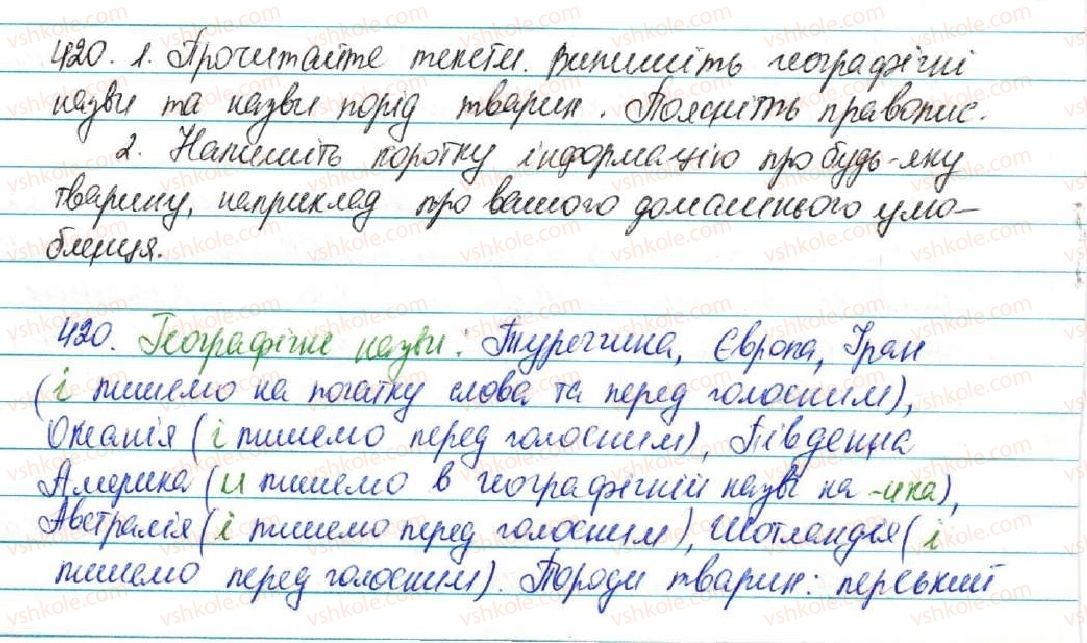 420. 1. Прочитайте тексти. Випишіть географічні
назви та назви порід тварин. Поясніть правопис.
2. Напишіть коротку інформацію про будь-яку
тварину, наприклад про вашого домашнього улю-
бленця.
420. Географічні назви: Туреччина, Європа, Іран
(і пишемо на початку слова та перед голосним),
Океанія (і пишемо перед голосним), Південна
Америка (и пишемо в географічній назві на -ика),
Австралія (і пишемо перед голосним), Шотландія (і
пишемо перед голосним). Породи тварин: перський